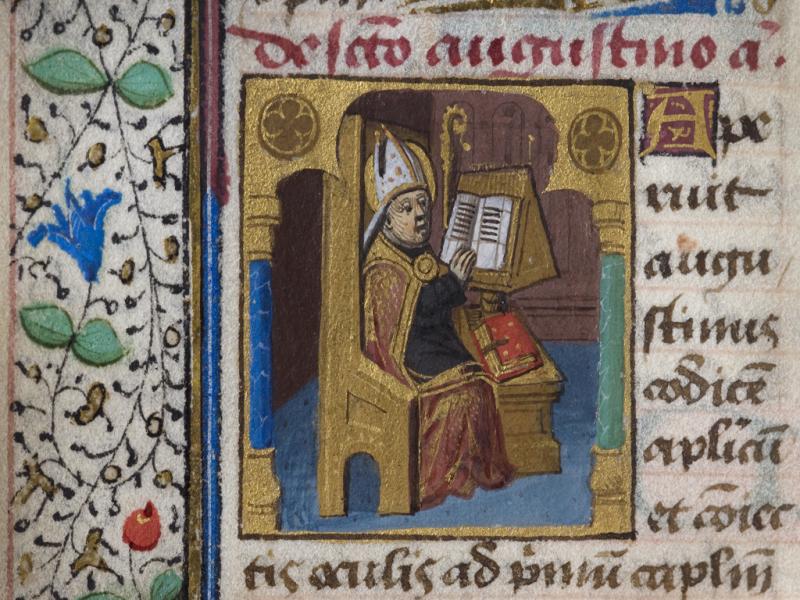 de sc̄to augustino a̅.
Ape
ruit
augu
stinus
codicē
ap̄licū
et cōiec
tis oculis ad p̄mū cap̄lm̄